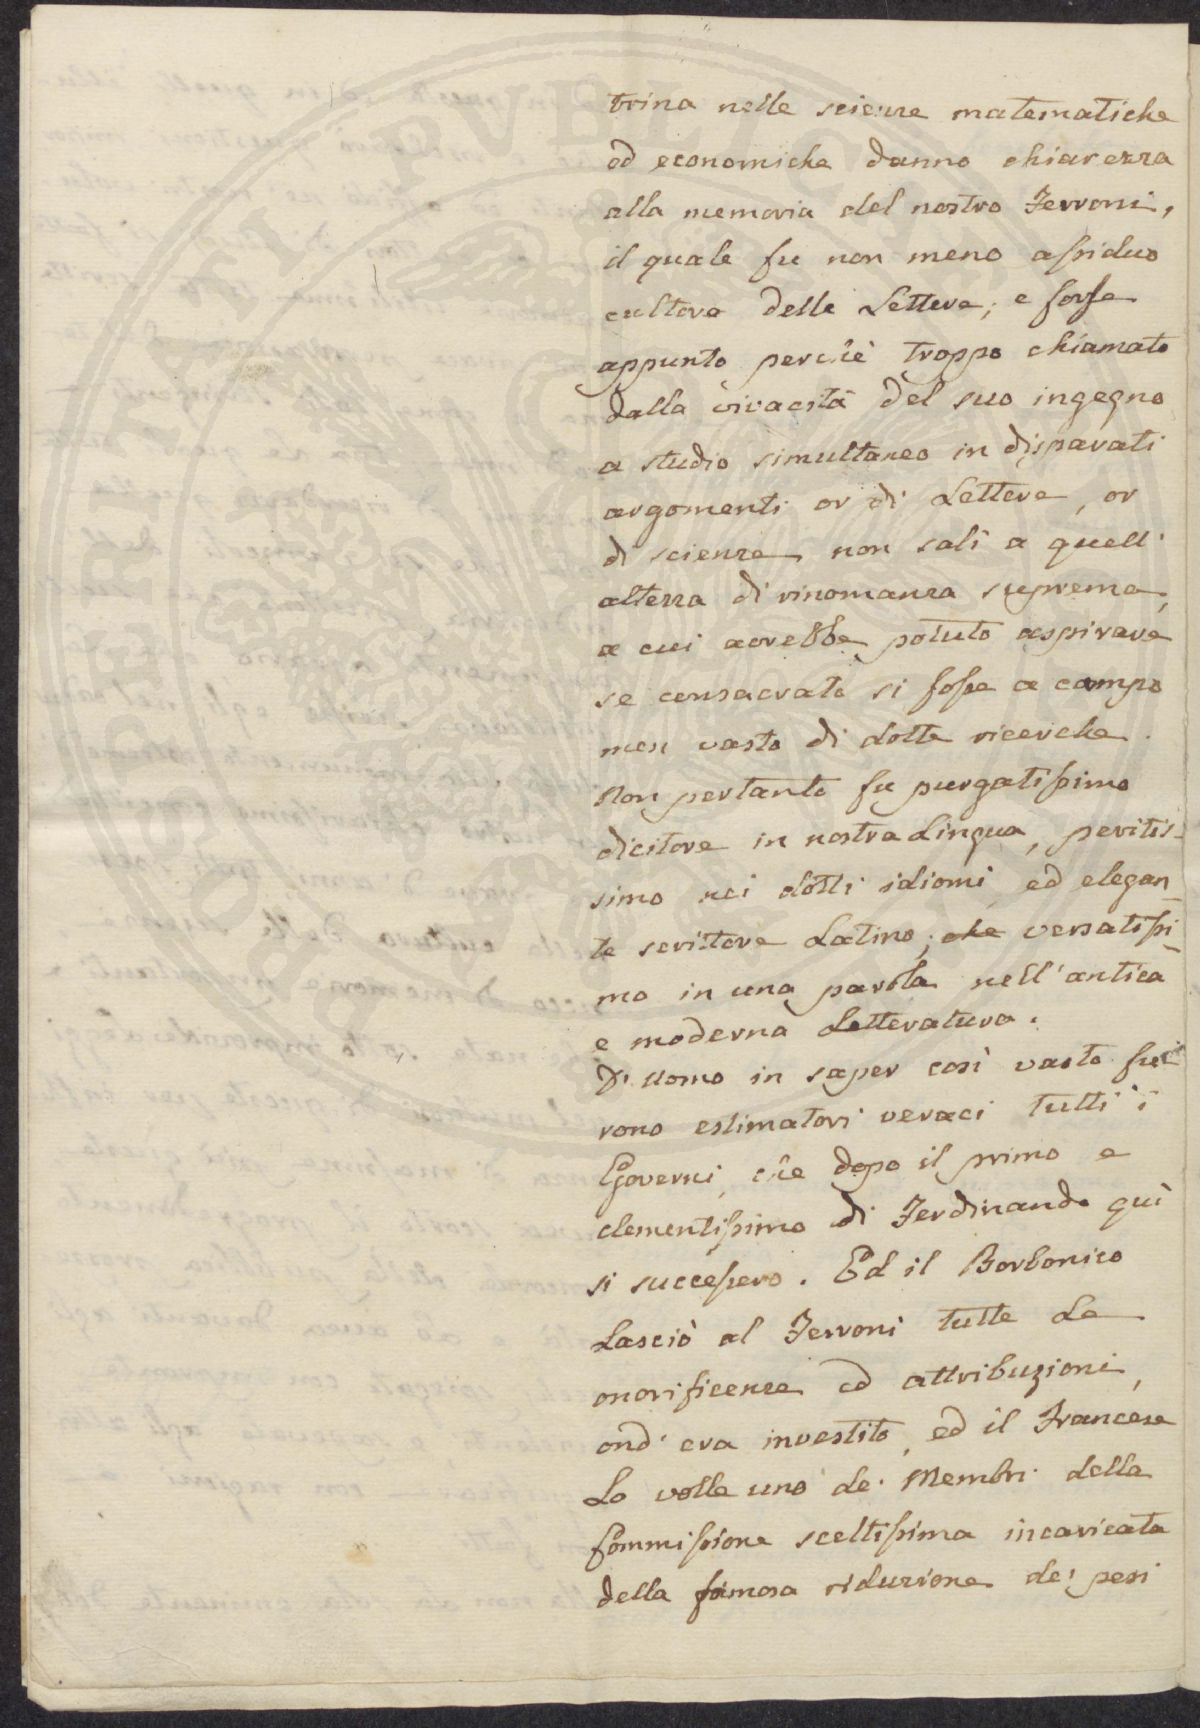 trina nelle scienze matematiche
ed economiche danno chiarezza
alla memoria del nostro Ferroni,
il quale fu non meno assiduo
cultore delle Lettere; e forse
appunto perchè troppo chiamato
dalla vivacità del suo ingegno
a studio simultaneo in disparati
argomenti or di Lettere, or
di scienze, non salì a quell'
altezza di rinomanza suprema,
a cui avrebbe potuto aspirare
se consacrato si fosse a campo
men vasto di dotte ricerche.
Non pertanto fu purgatissimo
dicitore in nostra Lingua, peritis-
simo nei dotti idiomi, ed elegan-
te scrittore Latino; che versatissi-
mo in una parola nell'antica
e moderna Letteratura.
D'uomo in saper così vasto fu-
rono estimatori veraci tutti i
Governi, che dopo il primo e
clementissimo di Ferdinando quì
si successero. Ed il Borbonico
Lasciò al Ferroni tutte Le
onorificenze ed attribuzioni,
ond'era investito, ed il Francese
Lo volle uno de' Membri della
Commissione sceltissima incaricata
della famosa riduzione de' pesi